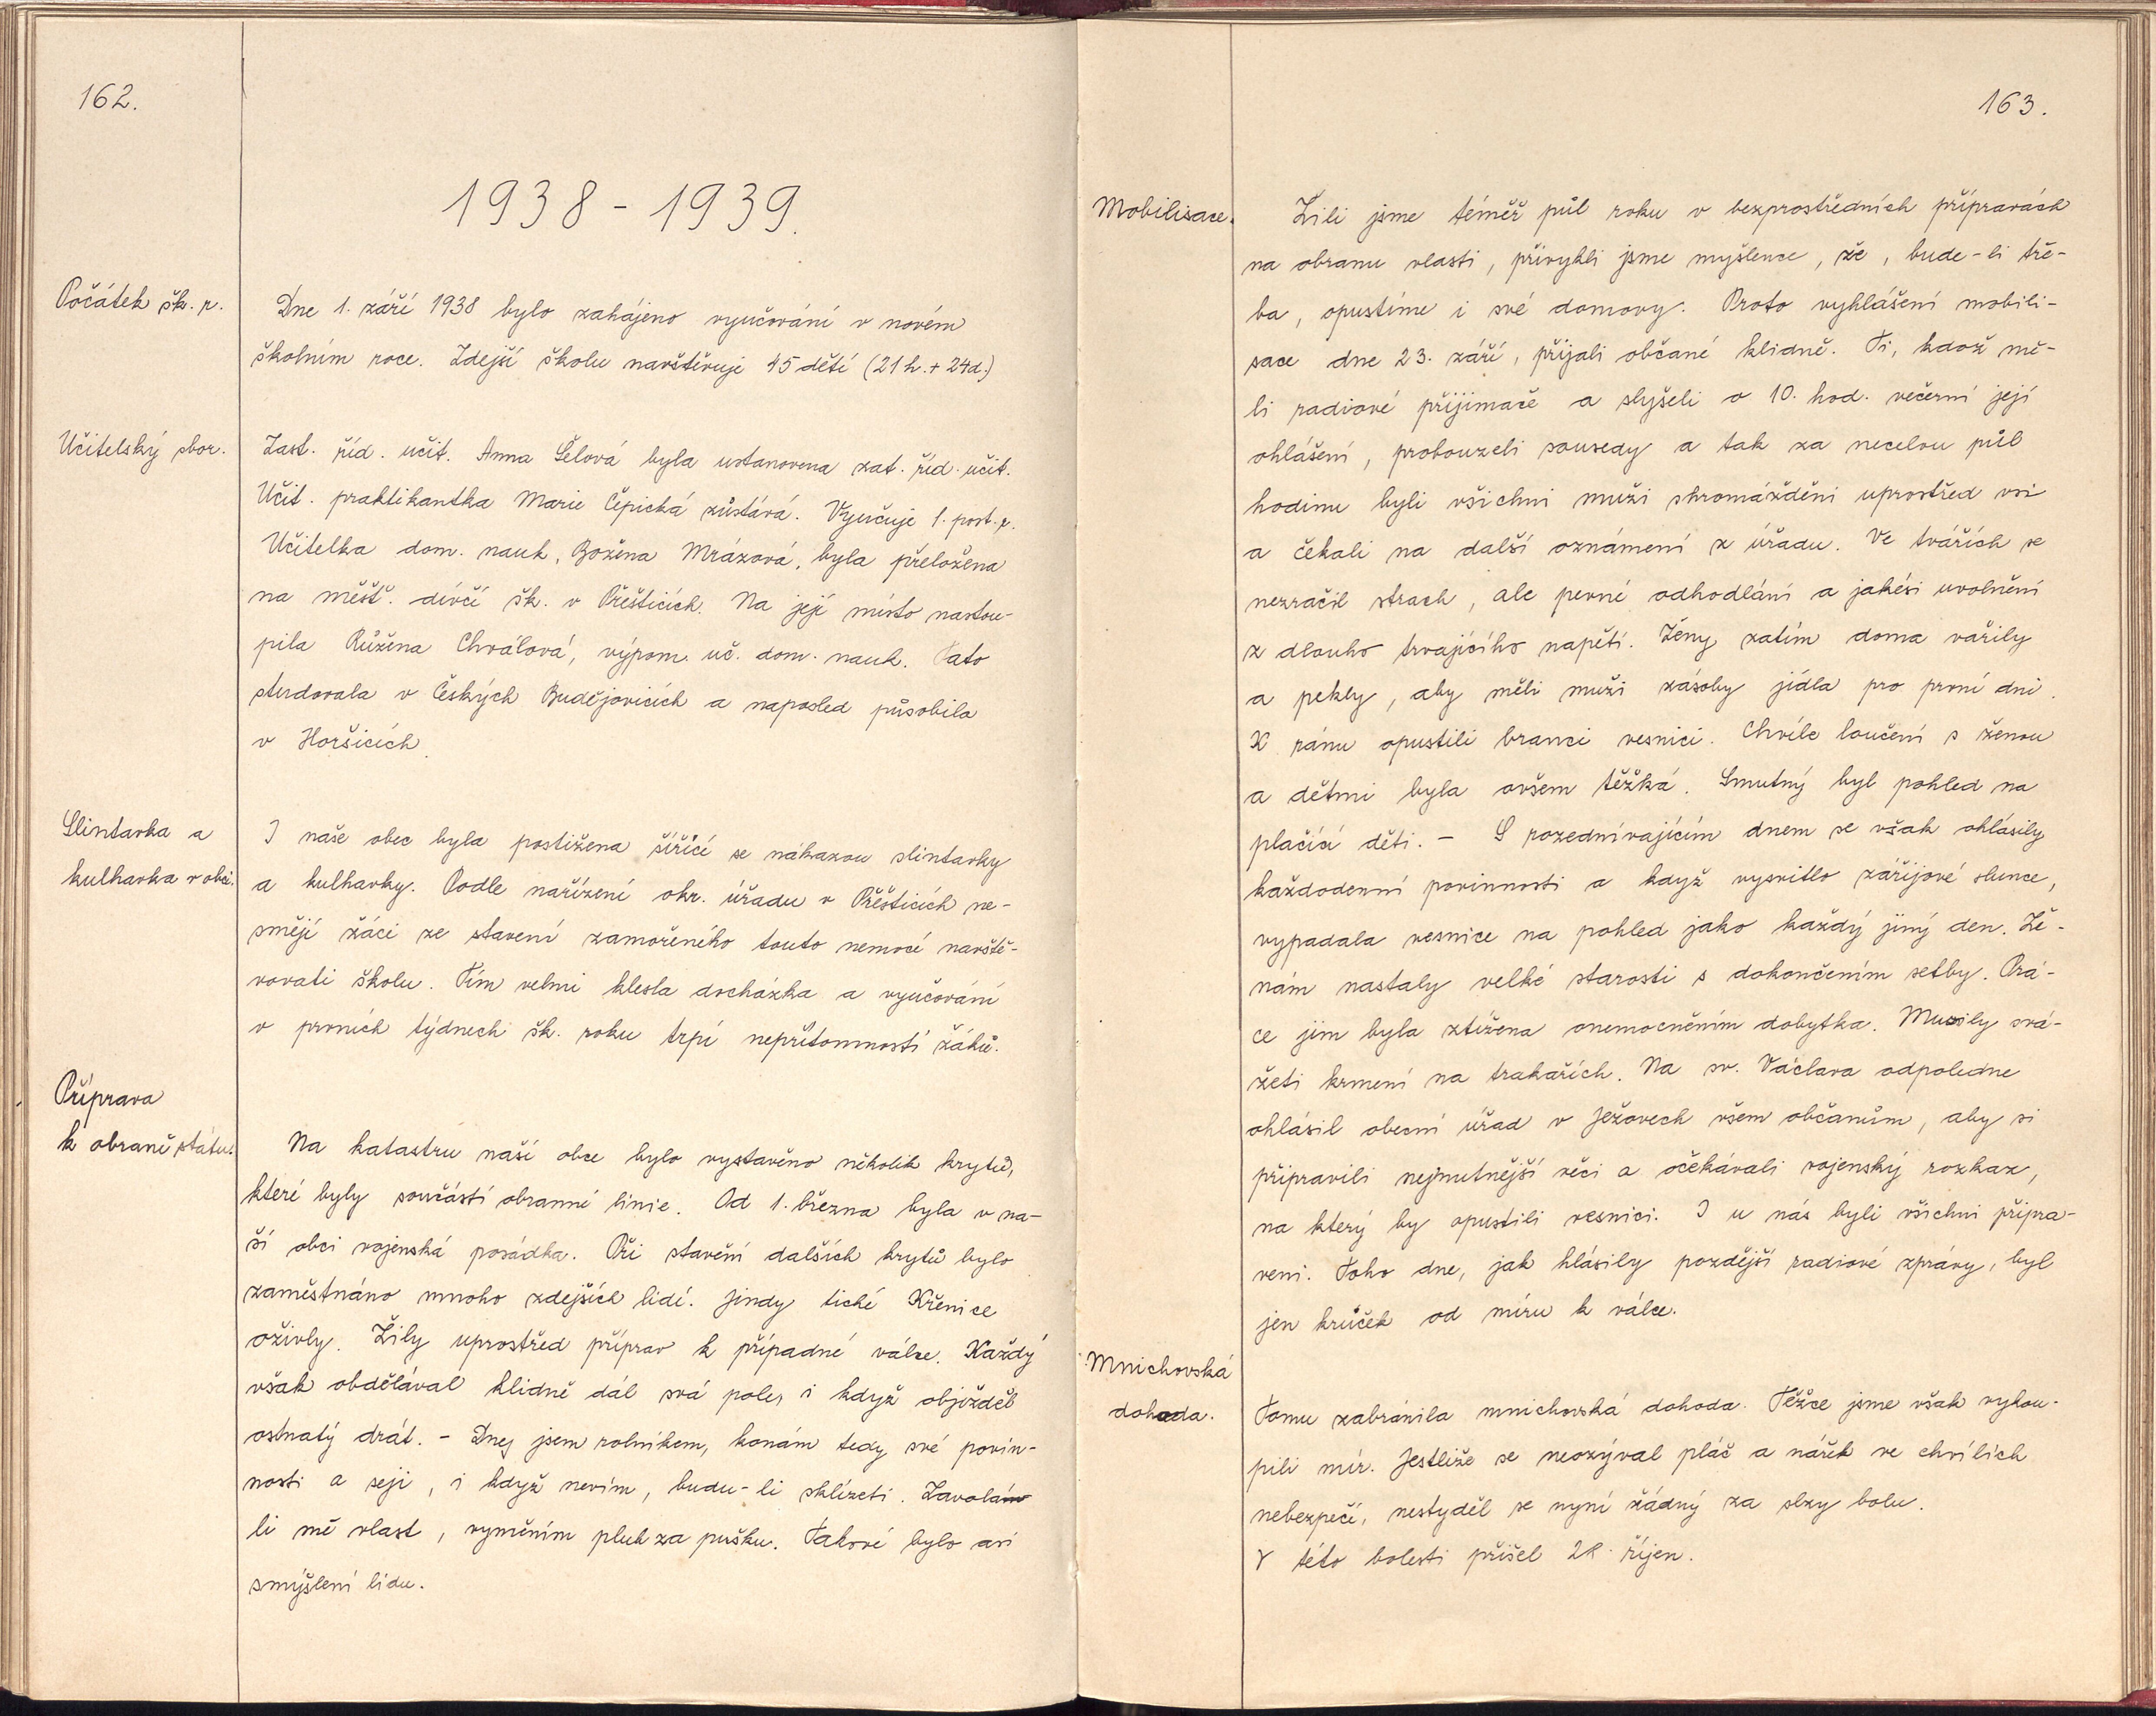 162.
1938 - 1939.
Počátek šk. r.
Dne 1. září 1938 bylo zahájeno vyučování v novém
školním roce. Zdejší školu navštěvuje 45 dětí (21 h. + 24 d.)
Učitelský sbor.
Zast. říd. učit. Anna Šelová byla ustanovena zat. říd. učit.
Učit. praktikantka Marie Čepická zůstává. Vyučuje 1. post. r.
Učitelka dom. nauk, Božena Mrázová, byla přeložena
na měšť. dívčí šk. v Přešticích. Na její místo nastou-
pila Růžena Chválová, výpom. uč. dom. nauk. Tato
studovala v Českých Budějovicích a naposled působila
v Horšicích.
Slintavka a
kulhavka v obci.
I naše obec byla postižena šířící se nákazou slintavky
a kulhavky. Podle nařízení okr. úřadu v Přešticích ne-
smějí žáci ze stavení zamořeného touto nemocí navště-
vovati školu. Tím velmi klesla docházka a vyučování
v prvních týdnech šk. roku trpí nepřítomností žáků.
Příprava
k obraně státu.
Na katastru naší obce bylo vystavěno několik krytů,
které byly součástí obranné linie. Od 1. března byla v na-
ší obci vojenská posádka. Při stavění dalších krytů bylo
zaměstnáno mnoho zdejších lidí. Jindy tiché Křenice
oživly. Žily uprostřed příprav k případné válce. Každý
však obdělával klidně dál svá pole, i když objížděl
ostnatý drát. - Dnes jsem rolníkem, konám tedy své povin-
nosti a seji, i když nevím, budu-li sklízeti. Zavolá-
li mě vlast, vyměním pluh za pušku. Takové bylo asi
smýšlení lidu.
163.
Mobilisace.
Žili jsme téměř půl roku v bezprostředních přípravách
na obranu vlasti, přivykli jsme myšlence, že, bude-li tře-
ba, opustíme i své domovy. Proto vyhlášení mobili-
sace dne 23. září, přijali občané klidně. Ti, kdož mě-
li radiové přijimače a slyšeli o 10. hod. večerní její
ohlášení, probouzeli sousedy a tak za necelou půl
hodinu byli všichni muži shromážděni uprostřed vsi
a čekali na další oznámení z úřadu. Ve tvářích se
nezračil strach, ale pevné odhodlání a jakési uvolnění
z dlouho trvajícího napětí. Ženy zatím doma vařily
a pekly, aby měli muži zásoby jídla pro první dni.
K ránu opustili branci vesnici. Chvíle loučení s ženou
a dětmi byla ovšem těžká. Smutný byl pohled na
plačící děti. - S rozednívajícím dnem se však ohlásily
každodenní povinnosti a když vysvitlo zářijové slunce,
vypadala vesnice na pohled jako každý jiný den. Že-
nám nastaly velké starosti s dokončením setby. Prá-
ce jim byla ztížena onemocněním dobytka. Musily svá-
žeti krmení na trakařích. Na sv. Václava odpoledne
ohlásil obecní úřad v Ježovech všem občanům, aby si
připravili nejnutnější věci a očekávali vojenský rozkaz,
na který by opustili vesnici. I u nás byli všichni připra-
veni. Toho dne, jak hlásily pozdější radiové zprávy, byl
jen krůček od míru k válce.
Mnichovská
dohoda.
Tomu zabránila mnichovská dohoda. Těžce jsme však vykou-
pili mír. Jestliže se neozýval pláč a nářek ve chvílích
nebezpečí, nestyděl se nyní žádný za slzy bolu.
V této bolesti přišel 28. říjen.